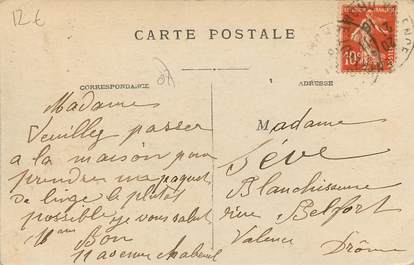 12€
CARTE POSTALE
CORRESPONDANCE
07
ADRESSE
10c
Madame
Veuillez passer
a la maison pour
prendre ma paquet
de linge le plutot
possible je vous salut
Mme Bon
11 avenue Chabeuil
Madame
Sève
Blanchisseuse
rue Belfort
Valence
Drôme